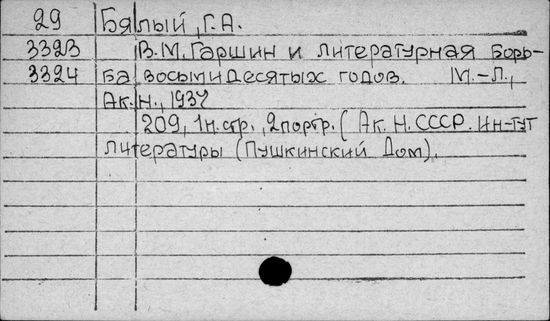 29 Бялый, Г.А.
3323 В.М. Гаршин и литературная борь-
3324 ба восьмидесятых годов. М.-Л.,
Ак. Н., 1937
209, 1 н. стр., 2 портр. (Ак. Н. СССР. Ин-тут
литературы (Пушкинский Дом).